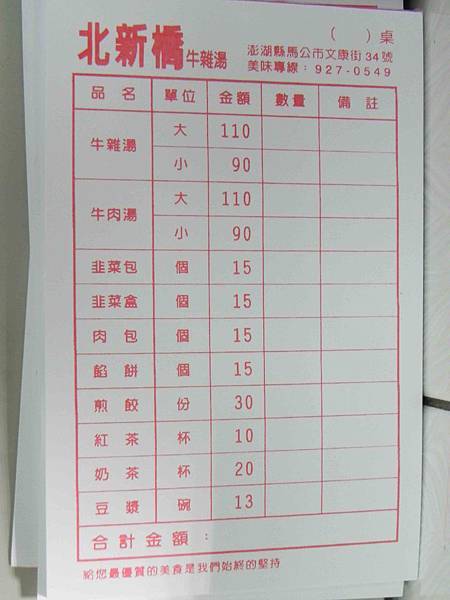 ( ) 桌
北新橋牛雜湯
澎湖縣馬公市文康街34號
美味專線：927-0549
品名 單位 金額 數量 備註
牛雜湯 大 110
小 90
牛肉湯 大 110
小 90
韭菜包 個 15
韭菜盒 個 15
肉包 個 15
餡餅 個 15
煎餃 份 30
紅茶 杯 10
奶茶 杯 20
豆漿 碗 13
合計金額：
給您最優質的美食是我們始終的堅持